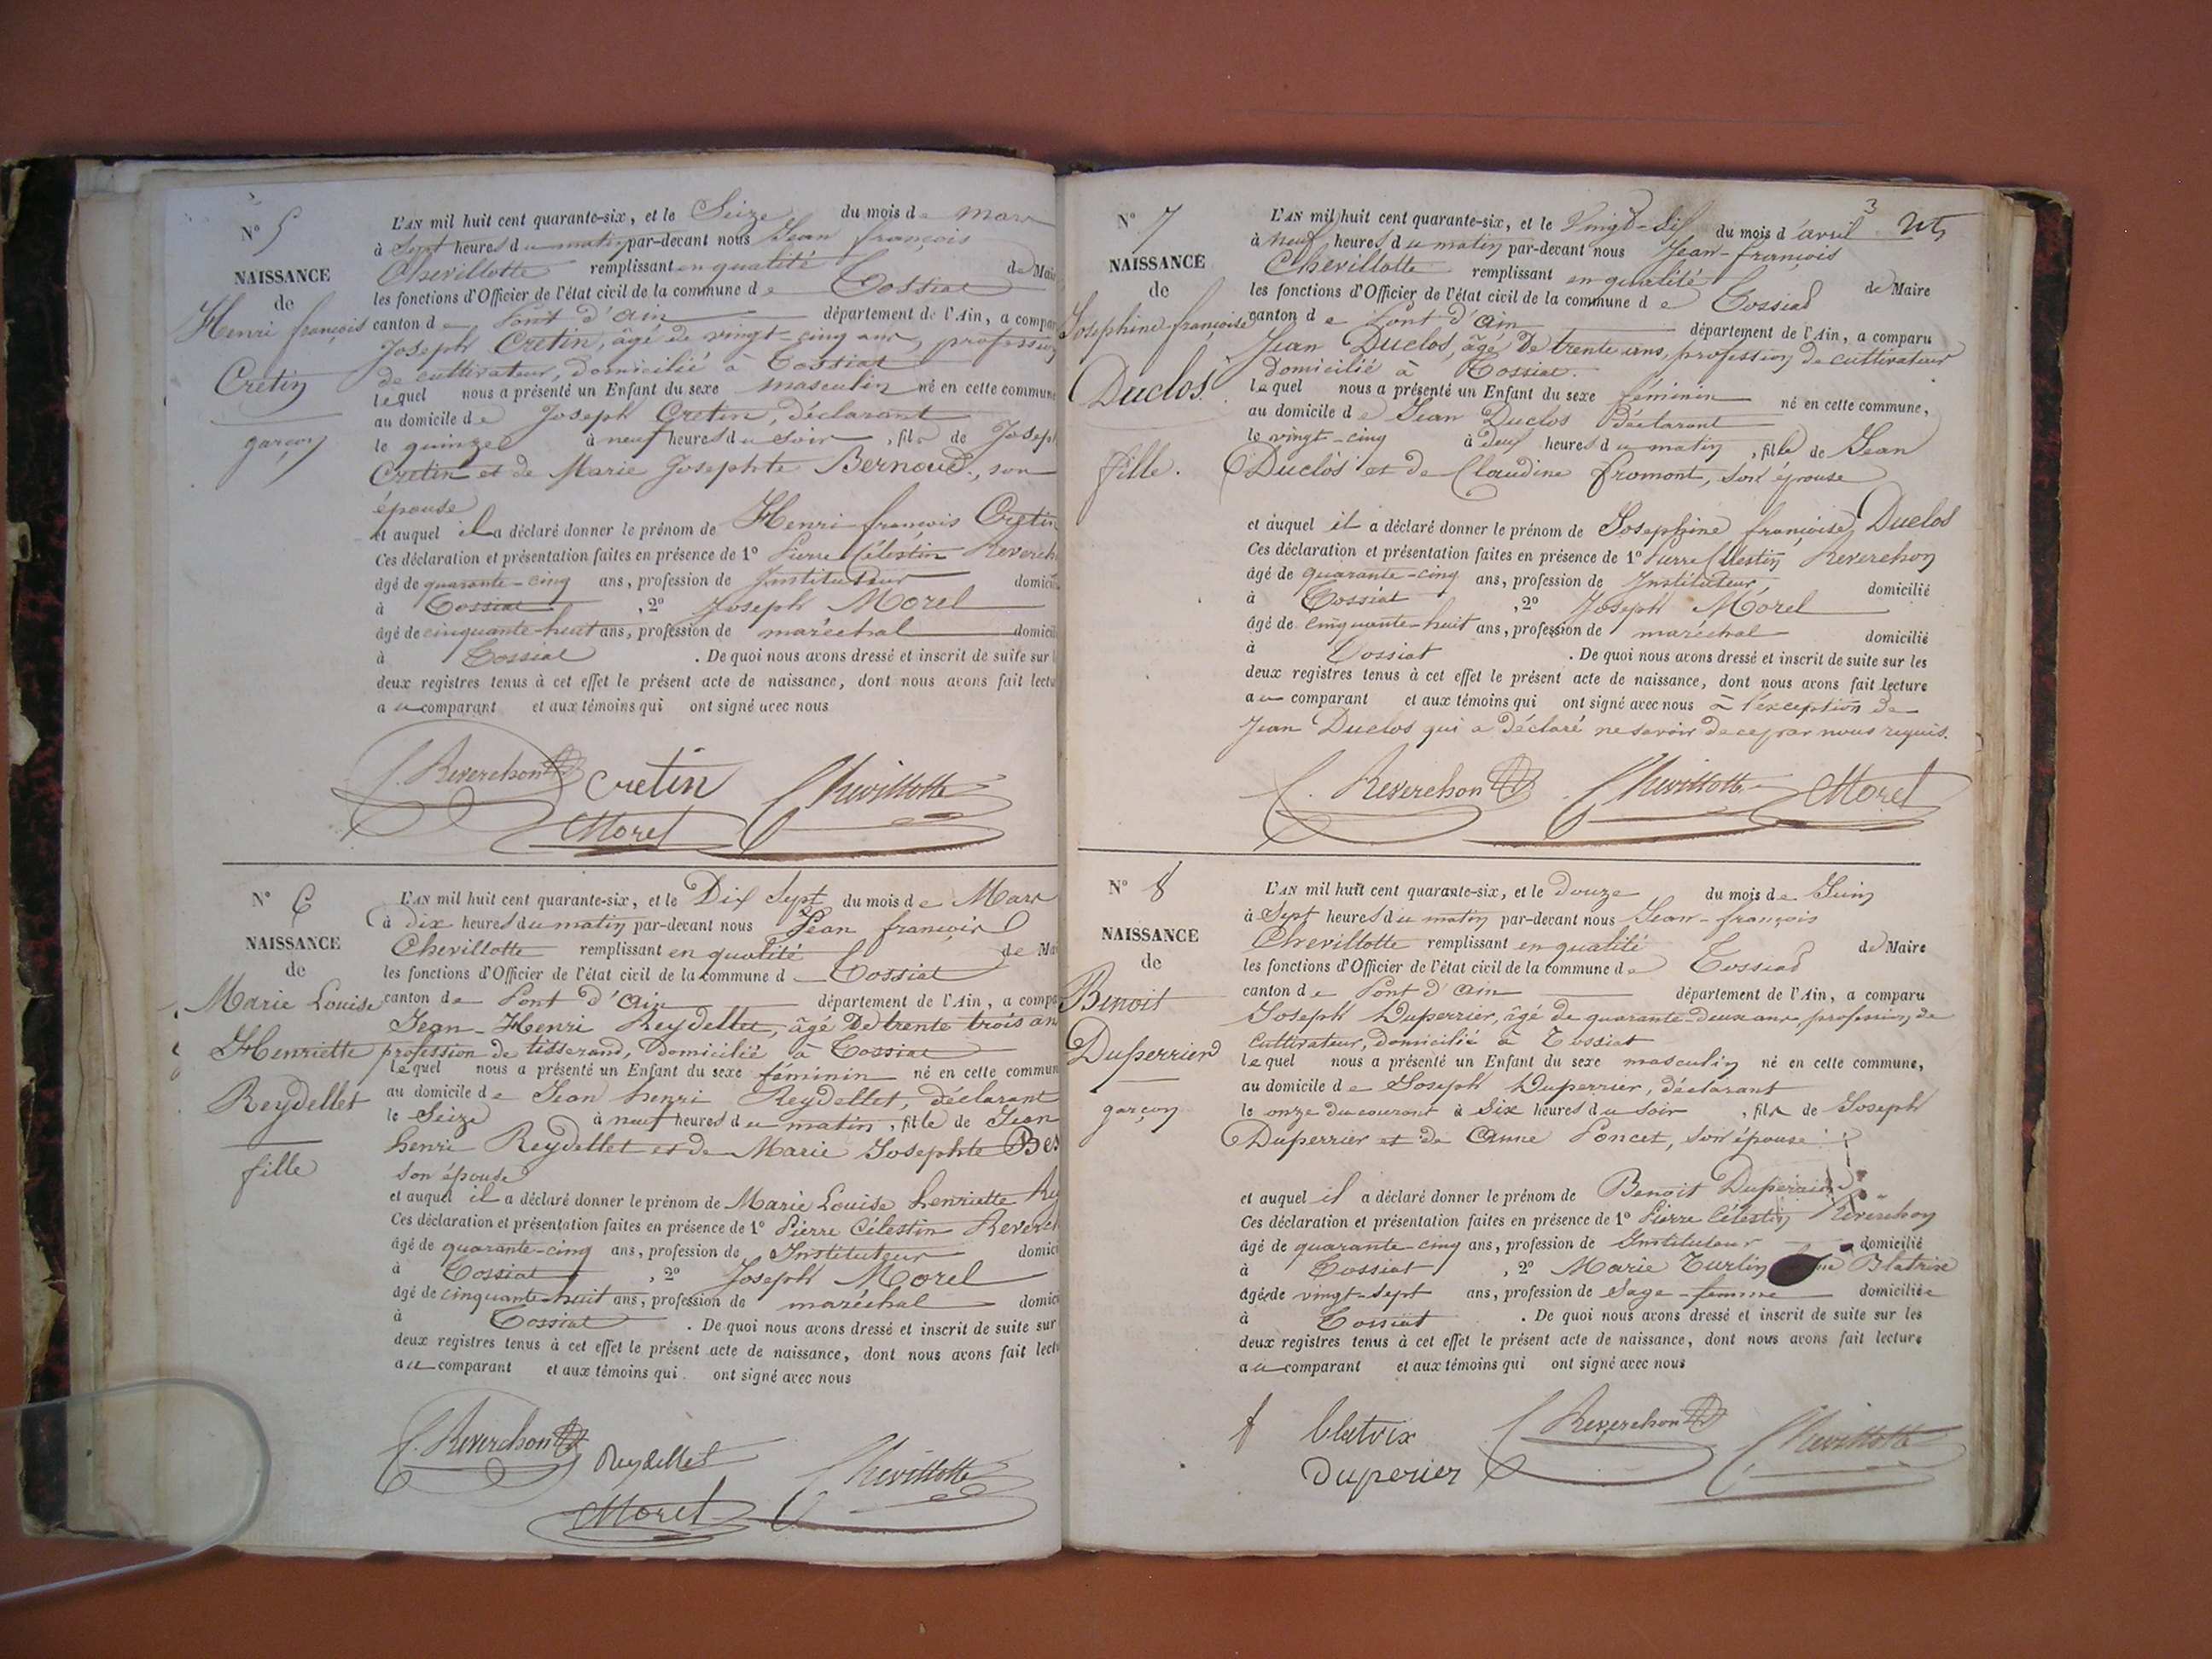 N° 5
NAISSANCE
de
Henri françois
Cretin
garçon
L'AN mil huit cent quarante-six, et le Seize du mois de mars
à Sept heures du matin par-devant nous Jean françois
Chevillotte remplissant en qualité de Mai
les fonctions d'Officier de l'état civil de la commune de Tossiat
canton de Pont d'Ain département de l'Ain, a compar
Joseph Cretin, âgé de vingt-cinq ans, profession
de cultivateur, domicilié à Tossiat
lequel nous a présenté un Enfant du sexe masculin né en cette commune
au domicile de Joseph Cretin, déclarant
le quinze à neuf heures du soir, fils de Joseph
Cretin et de Marie Josephte Bernoud, son
épouse
et auquel il a déclaré donner le prénom de Henri françois Cretin
Ces déclaration et présentation faites en présence de 1° Pierre Célestin Reverch
âgé de quarante-cinq ans, profession de Instituteur domicil
à Tossiat, 2° Joseph Morel
âgé de cinquante-huit ans, profession de maréchal domicil
à Tossiat. De quoi nous avons dressé et inscrit de suite sur l
deux registres tenus à cet effet le présent acte de naissance, dont nous avons fait lectu
au comparant et aux témoins qui ont signé avec nous
C. Reverchon Cretin Chevillotte
Morel
N° 6
NAISSANCE
de
Marie Louise
Henriette
Reydellet
fille
L'AN mil huit cent quarante-six, et le Dix Sept du mois de Mars
à dix heures du matin par-devant nous Jean françois
Chevillotte remplissant en qualité de Mai
les fonctions d'Officier de l'état civil de la commune d Tossiat
canton de Pont d'Ain département de l'Ain, a compa
Jean-Henri Reydellet, âgé de trente trois an
profession de tisserand, domicilié à Tossiat
lequel nous a présenté un Enfant du sexe féminin né en cette commun
au domicile de Jean henri Reydellet, déclarant
le Seize à neuf heures du matin, fille de Jean
henri Reydellet et de Marie Josephte Bes
son épouse
et auquel il a déclaré donner le prénom de Marie Louise henriette Rey
Ces déclaration et présentation faites en présence de 1° Pierre Célestin Reverch
âgé de quarante-cinq ans, profession de Instituteur domici
à Tossiat, 2° Joseph Morel
âgé de cinquante-huit ans, profession de maréchal domici
à Tossiat. De quoi nous avons dressé et inscrit de suite sur
deux registres tenus à cet effet le présent acte de naissance, dont nous avons fait lectu
au comparant et aux témoins qui ont signé avec nous
C. Reverchon Reydellet Chevillotte
Morel
3
N° 7
NAISSANCE
de
Josephine françoise
Duclos
fille.
L'AN mil huit cent quarante-six, et le Vingt-Six du mois d'avril
à neuf heures du matin par-devant nous Jean-françois
Chevillotte remplissant en qualité de Maire
les fonctions d'Officier de l'état civil de la commune de Tossiat
canton de Pont d'Ain département de l'Ain, a comparu
Jean Duclos, âgé De trente ans, profession de cultivateur
domicilié à Tossiat.
lequel nous a présenté un Enfant du sexe féminin né en cette commune,
au domicile de Jean Duclos Déclarant
le vingt-cinq à deux heures du matin, fille de Jean
Duclos et de Claudine fromont, son épouse
et auquel il a déclaré donner le prénom de Josephine françoise Duclos
Ces déclaration et présentation faites en présence de 1° Pierre Célestin Reverchon
âgé de quarante-cinq ans, profession de Instituteur, domicilié
à Tossiat, 2° Joseph Morel
âgé de cinquante-huit ans, profession de maréchal domicilié
à Tossiat. De quoi nous avons dressé et inscrit de suite sur les
deux registres tenus à cet effet le présent acte de naissance, dont nous avons fait lecture
au comparant et aux témoins qui ont signé avec nous à l'exception de
Jean Duclos qui a déclaré ne savoir de ce par nous requis.
C. Reverchon Chevillotte Morel
N° 8
NAISSANCE
de
Benoit
Duperrier
garçon
L'AN mil huit cent quarante-six, et le douze du mois de Juin
à Sept heures du matin par-devant nous Jean-françois
Chevillotte remplissant en qualité de Maire
les fonctions d'Officier de l'état civil de la commune de Tossiat
canton de Pont d'Ain département de l'Ain, a comparu
Joseph Duperrier, âgé de quarante-deux ans profession de
cultivateur, domicilié à Tossiat
lequel nous a présenté un Enfant du sexe masculin né en cette commune,
au domicile de Joseph Duperrier, déclarant
le onze du courant à Six heures du soir, fils de Joseph
Duperrier et de Anne Poncet, son épouse
et auquel il a déclaré donner le prénom de Benoit Duperrier
Ces déclaration et présentation faites en présence de 1° Pierre Célestin Reverchon
âgé de quarante-cinq ans, profession de Instituteur domicilié
à Tossiat, 2° Marie Turlin Blatrix
âgée de vingt-sept ans, profession de Sage-femme domiciliée
à Tossiat. De quoi nous avons dressé et inscrit de suite sur les
deux registres tenus à cet effet le présent acte de naissance, dont nous avons fait lecture
au comparant et aux témoins qui ont signé avec nous
f blatrix C. Reverchon Chevillotte
Duperier